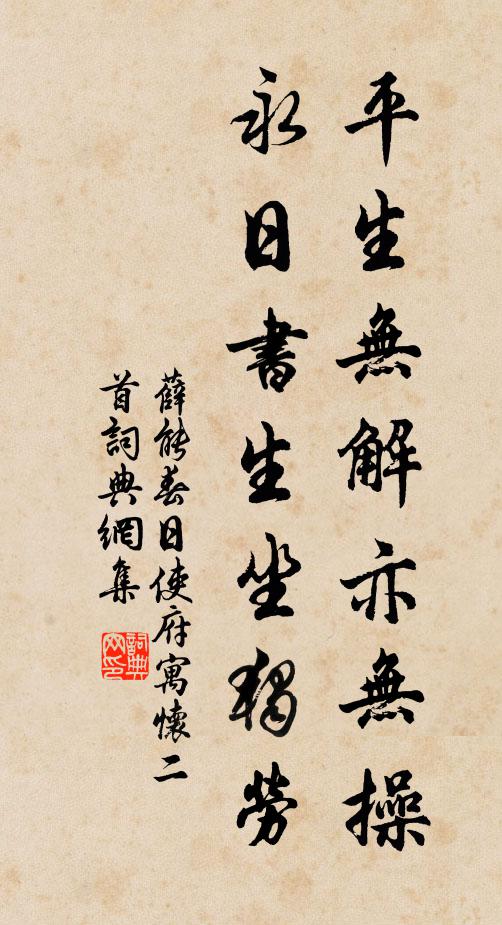 平生無解亦無操
永日書生坐獨勞
薛能春日使府寓懷二
首詞典網集
詞典
网印